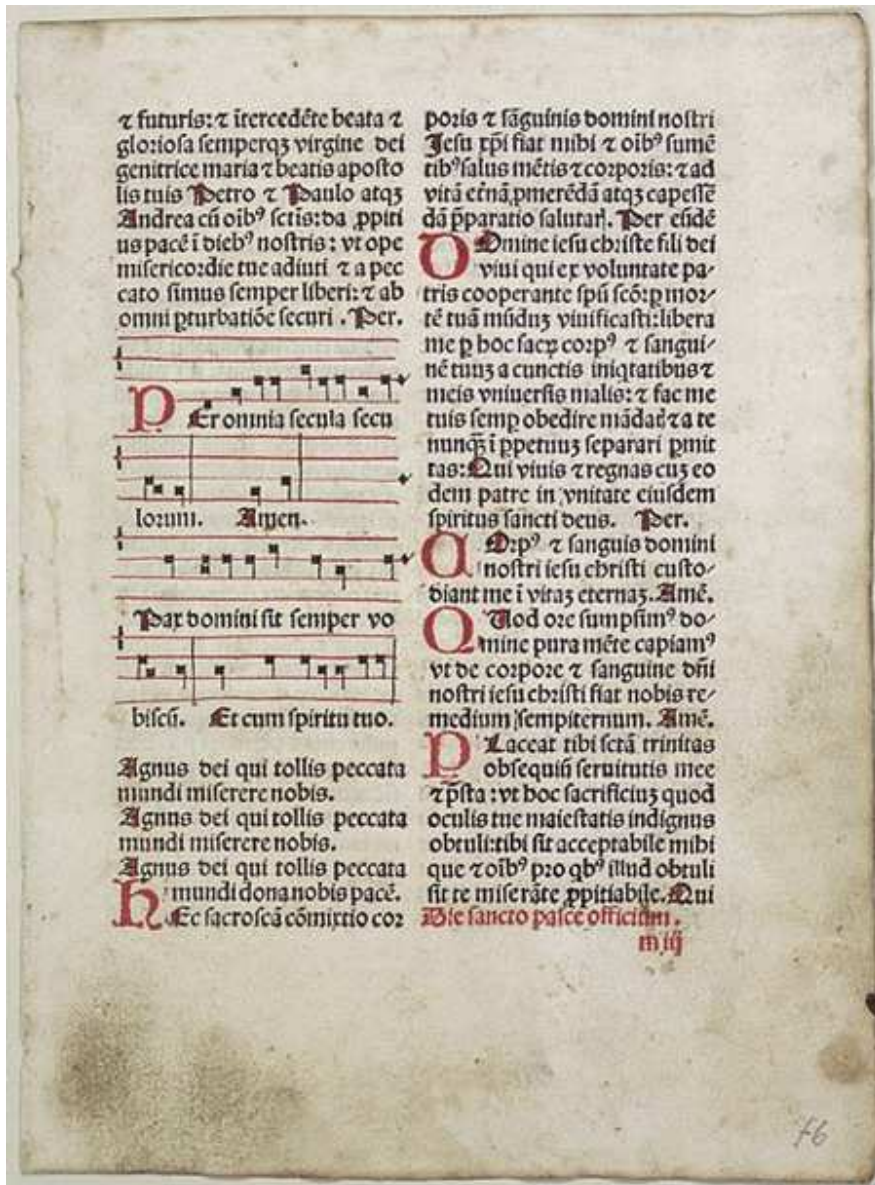 ⁊ futuris: ⁊ ītercedēte beata ⁊
gloriosa semperqꝫ virgine dei
genitrice maria ⁊ beatis aposto
lis tuis Petro ⁊ Paulo atqꝫ
Andrea cū oībꝰ sctīs: da ꝓpiti
us pacē ī diebꝰ nostris: vt ope
misericordie tue adiuti ⁊ a pec
cato simus semper liberi: ⁊ ab
omni ꝑturbatiōe securi. Per.
PEr omnia secula secu
lorum. Amen.
Pax domini sit semper vo
biscū. Et cum spiritu tuo.
Agnus dei qui tollis peccata
mundi miserere nobis.
Agnus dei qui tollis peccata
mundi miserere nobis.
Agnus dei qui tollis peccata
mundi dona nobis pacē.
HEc sacroscā cōmixtio cor
poris ⁊ sāguinis domini nostri
Jesu xp̄i fiat mihi ⁊ oībꝰ sumē
tibꝰ salus mētis ⁊ corporis: ⁊ ad
vitā et̄nā ꝓmerēdā atqꝫ capessē
dā p̄paratio salutarꝭ. Per eūdē
DOmine iesu christe fili dei
viui qui ex voluntate pa⸗
tris cooperante spū scō: ꝑ mor⸗
tē tuā mūdūꝫ viuificasti: libera
me ꝑ hoc sacꝝ corpꝰ ⁊ sangui⸗
nē tuuꝫ a cunctis iniqtatibus ⁊
meis vniuersis malis: ⁊ fac me
tuis semꝑ obedire mādatꝭ ⁊ a te
nunq̄ꝫ ī ꝑpetuuꝫ separari ꝑmit
tas: Qui viuis ⁊ regnas cuꝫ eo
dem patre in vnitate eiusdem
spiritus sancti deus. Per.
COrpꝰ ⁊ sanguis domini
nostri iesu christi custo⸗
diant me ī vitaꝫ eternaꝫ. Amē.
QUod ore sumpsimꝰ do⸗
mine pura mēte capiamꝰ
vt de corpore ⁊ sanguine dn̄i
nostri iesu christi fiat nobis re⸗
medium sempiternum. Amē.
PLaceat tibi sctā trinitas
obsequiū seruitutis mee
⁊ p̄sta: vt hoc sacrificiuꝫ quod
oculis tue maiestatis indignus
obtuli: tibi sit acceptabile mihi
que ⁊ oībꝰ pro qbꝰ illud obtuli
sit te miserāte ꝓpitiabile. Qui
Die sancto pasce officium.
m iij
f6